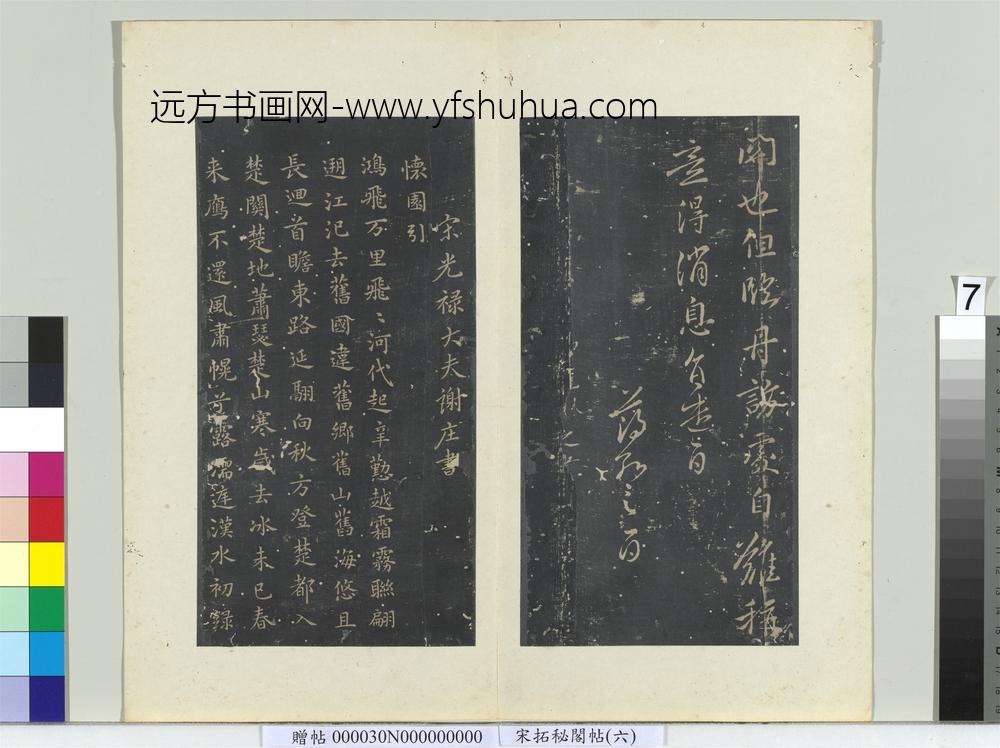 远方书画网-www.yfshuhua.com
也但臨丹
自難稱
意得消息
宋光禄大夫謝庄書
懷園引
鴻飛万里飛〻河代起辛懃越霜霧聯翩
遡江汜去舊國違舊鄉舊山舊海悠且
長迴首瞻東路延翮向秋方登楚都入
楚關楚地蕭瑟楚山寒歲去冰未已春
来鴈不還風肅幌兮露濡庭漢水初綠
7
贈帖 000030N000000000
宋拓秘閣帖(六)